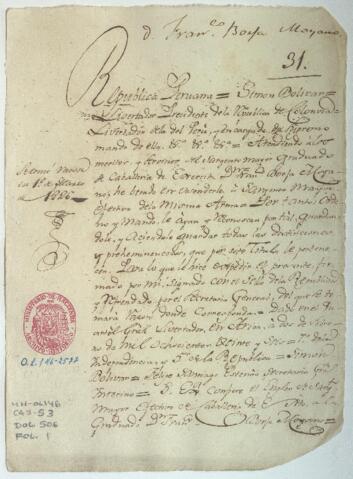 d. Fran.co Borja Moyano
31.
República Peruana = Simon Bolivar =
Libertador Presidente de la República de Colombia
Libertador de la del Perú, y encargado del Supremo
mando de ella &.a &.a &.a = Atendiendo a los
meritos, y servicios del Sargento mayor Graduado
de Caballeria de Exercito Dn Fran.co Borja Moya
no, he benido en ascenderlo a Sargento Mayor
efectivo de la misma Arma = Por tanto Ordeno
y Mando, le ayan y Reconoscan por tal, Guardan
dole, y Aciendole guardar todas las distinciones
y preheminencias, que por este titulo le pertene
cen. Para lo que le hice expedir el presente, fir
mado por mi, Signado con el Sello de la República
y Refrendado por el Secretario General, del que se to
mará Razon donde Corresponda = Dado en el
Quartel Gral Libertador, en
de Mil Ochocientos Veinte y Seis = 7.o de la
Independencia, y 5.o de la República = Simon
Bolivar =
Interino = S. E. Confiere el Empleo de Sarg.to
Mayor Efectivo de Caballeria de
Graduado Dn Fran.co Borja Moyano =
1826
MINISTERIO DE HACIENDA
O.L. 146-2577
MH-OL146
CAJ-53
DOC 506
FOL. 1